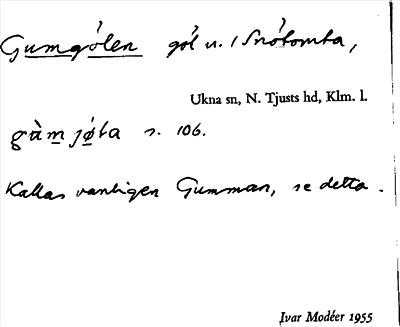 Gumgölen göl u. / Snötomta,
Ukna sn, N. Tjusts hd, Klm. l.
gàm jǿla s. 106.
Kallas vanligen Gumman, se detta.
Ivar Modéer 1955